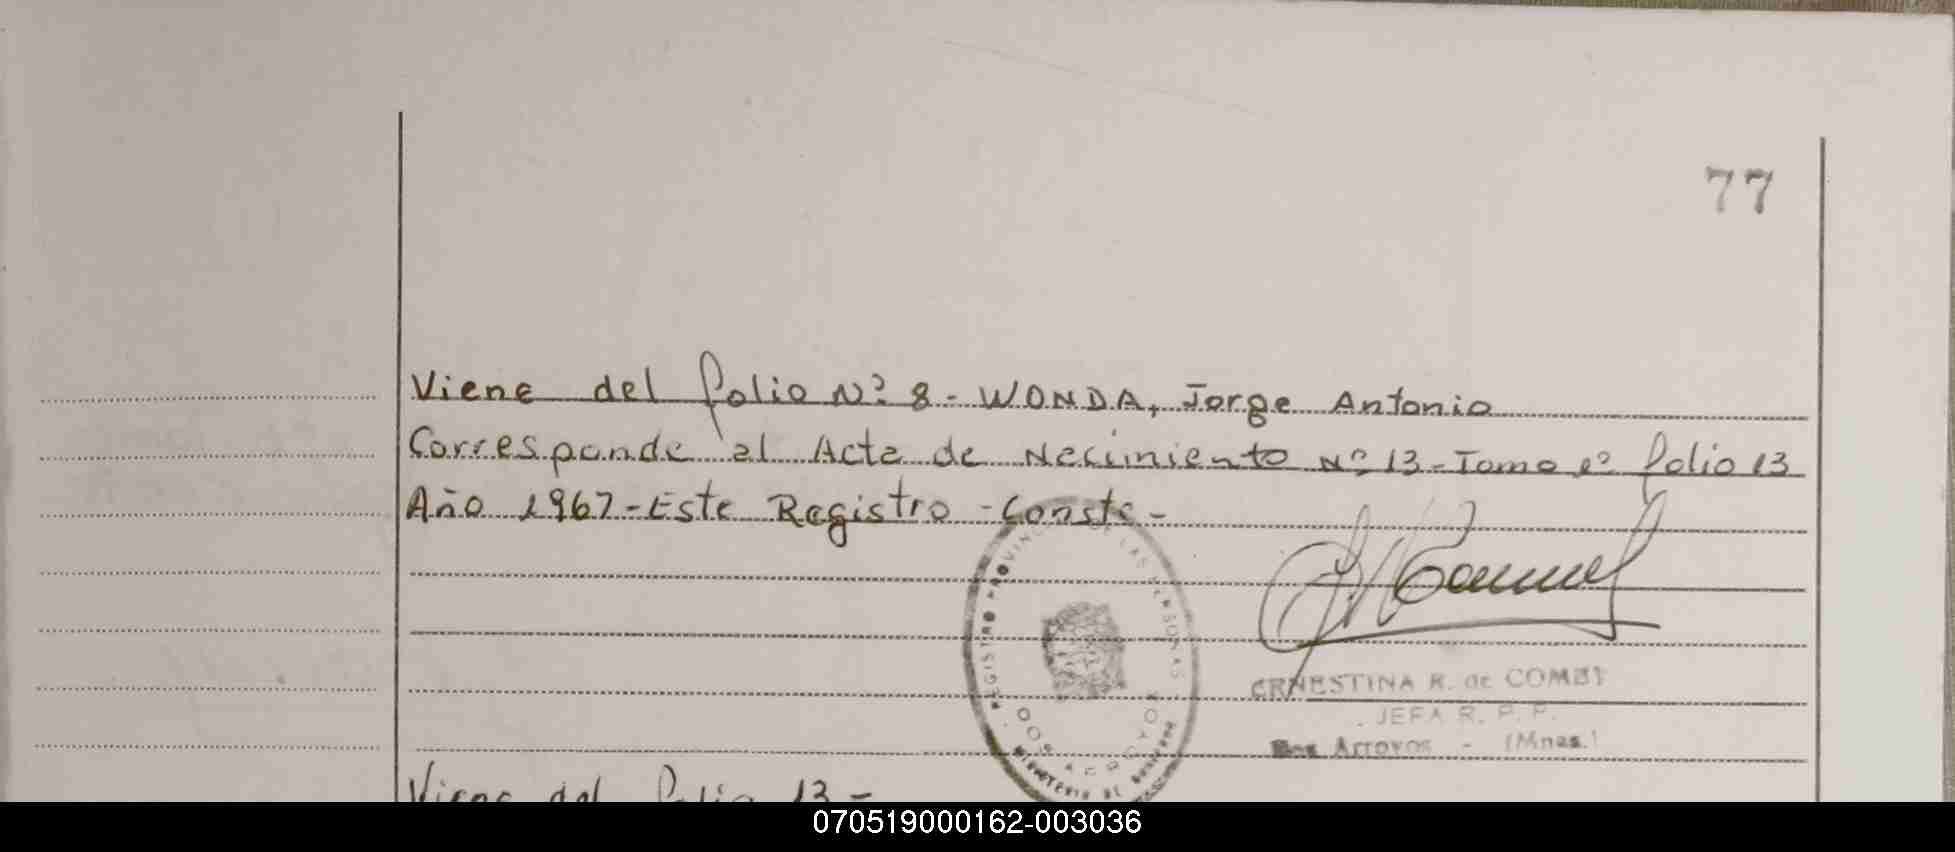 77
Viene del folio Nº 8 - WONDA, Jorge Antonio
Corresponde al Acta de Necimiento Nº 13 - Tomo 1º folio 13
Año 1967 - Este Registro - Conste -
REGISTRO PROVINC DE LAS PERSONAS
DOS ARROYOS
MINISTERIO DE GOBIERNO
ERNESTINA R. de COMBI
JEFA R. P. P.
Dos Arroyos - (Mnes.)
Viene del folio 13 -
070519000162-003036